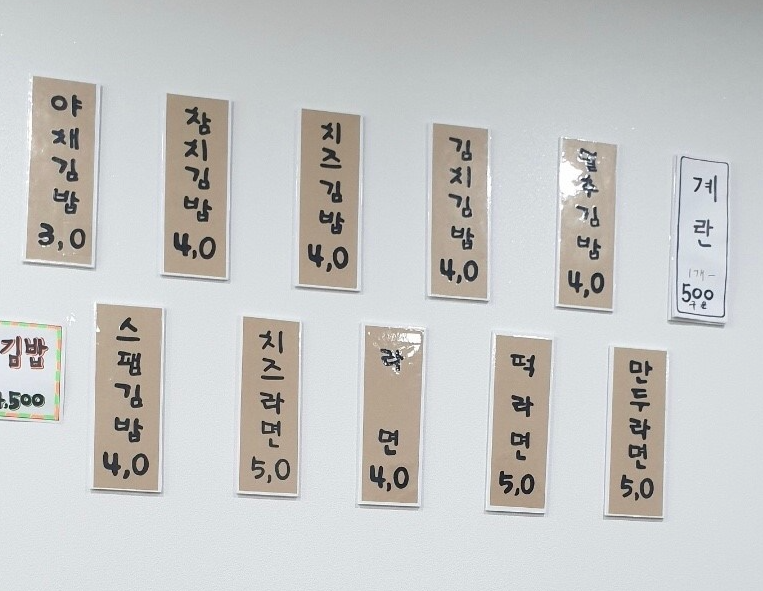 야채김밥 3,0
참치김밥 4,0
치즈김밥 4,0
김치김밥 4,0
멸추김밥 4,0
계란
1개-
500
김밥
,500
스팸김밥 4,0
치즈라면 5,0
라면 4,0
떡라면 5,0
만두라면 5,0